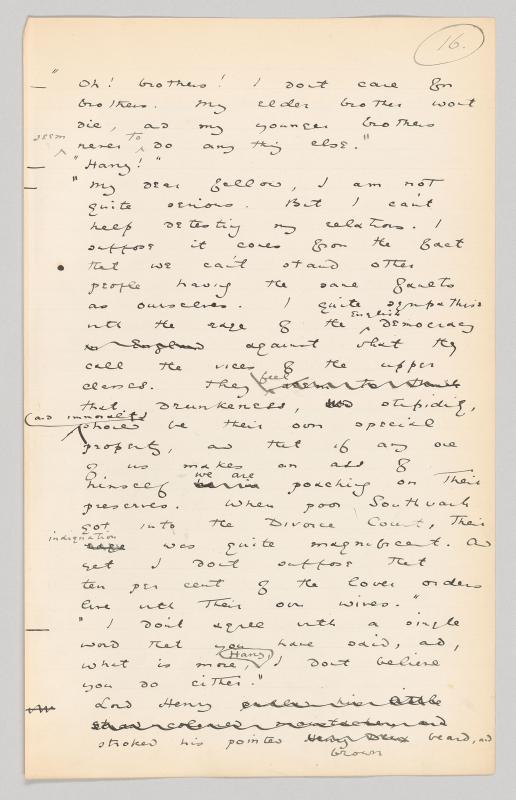 16.
"Oh! brothers! I don't care for
brothers. My elder brother won't
die, and my younger brothers
seem to
never do any thing else."
"Harry!"
"My dear fellow, I am not
quite serious. But I can't
help detesting my relations. I
suppose it comes from the fact
that we can't stand other
people having the same faults
as ourselves. I quite sympathise
with the rage of the English Democracy
in England against what they
call the vices of the upper
classes. They feel seem to think
that drunkeness, stupidity,
(and immorality
should be their own special
property, and that if any one
of us makes an ass of
himself we are poaching on their
preserves. When poor Southwark
got into the Divorce Court, their
indignation
rage was quite magnificent. And
yet I don't suppose that
ten per cent of the lower orders
live with their own wives."
"I don't agree with a single
word that you have said, and,
what is more, Harry, I don't believe
you do either."
Lord Henry
straw coloured moustache and
stroked his pointed beard, and
brown